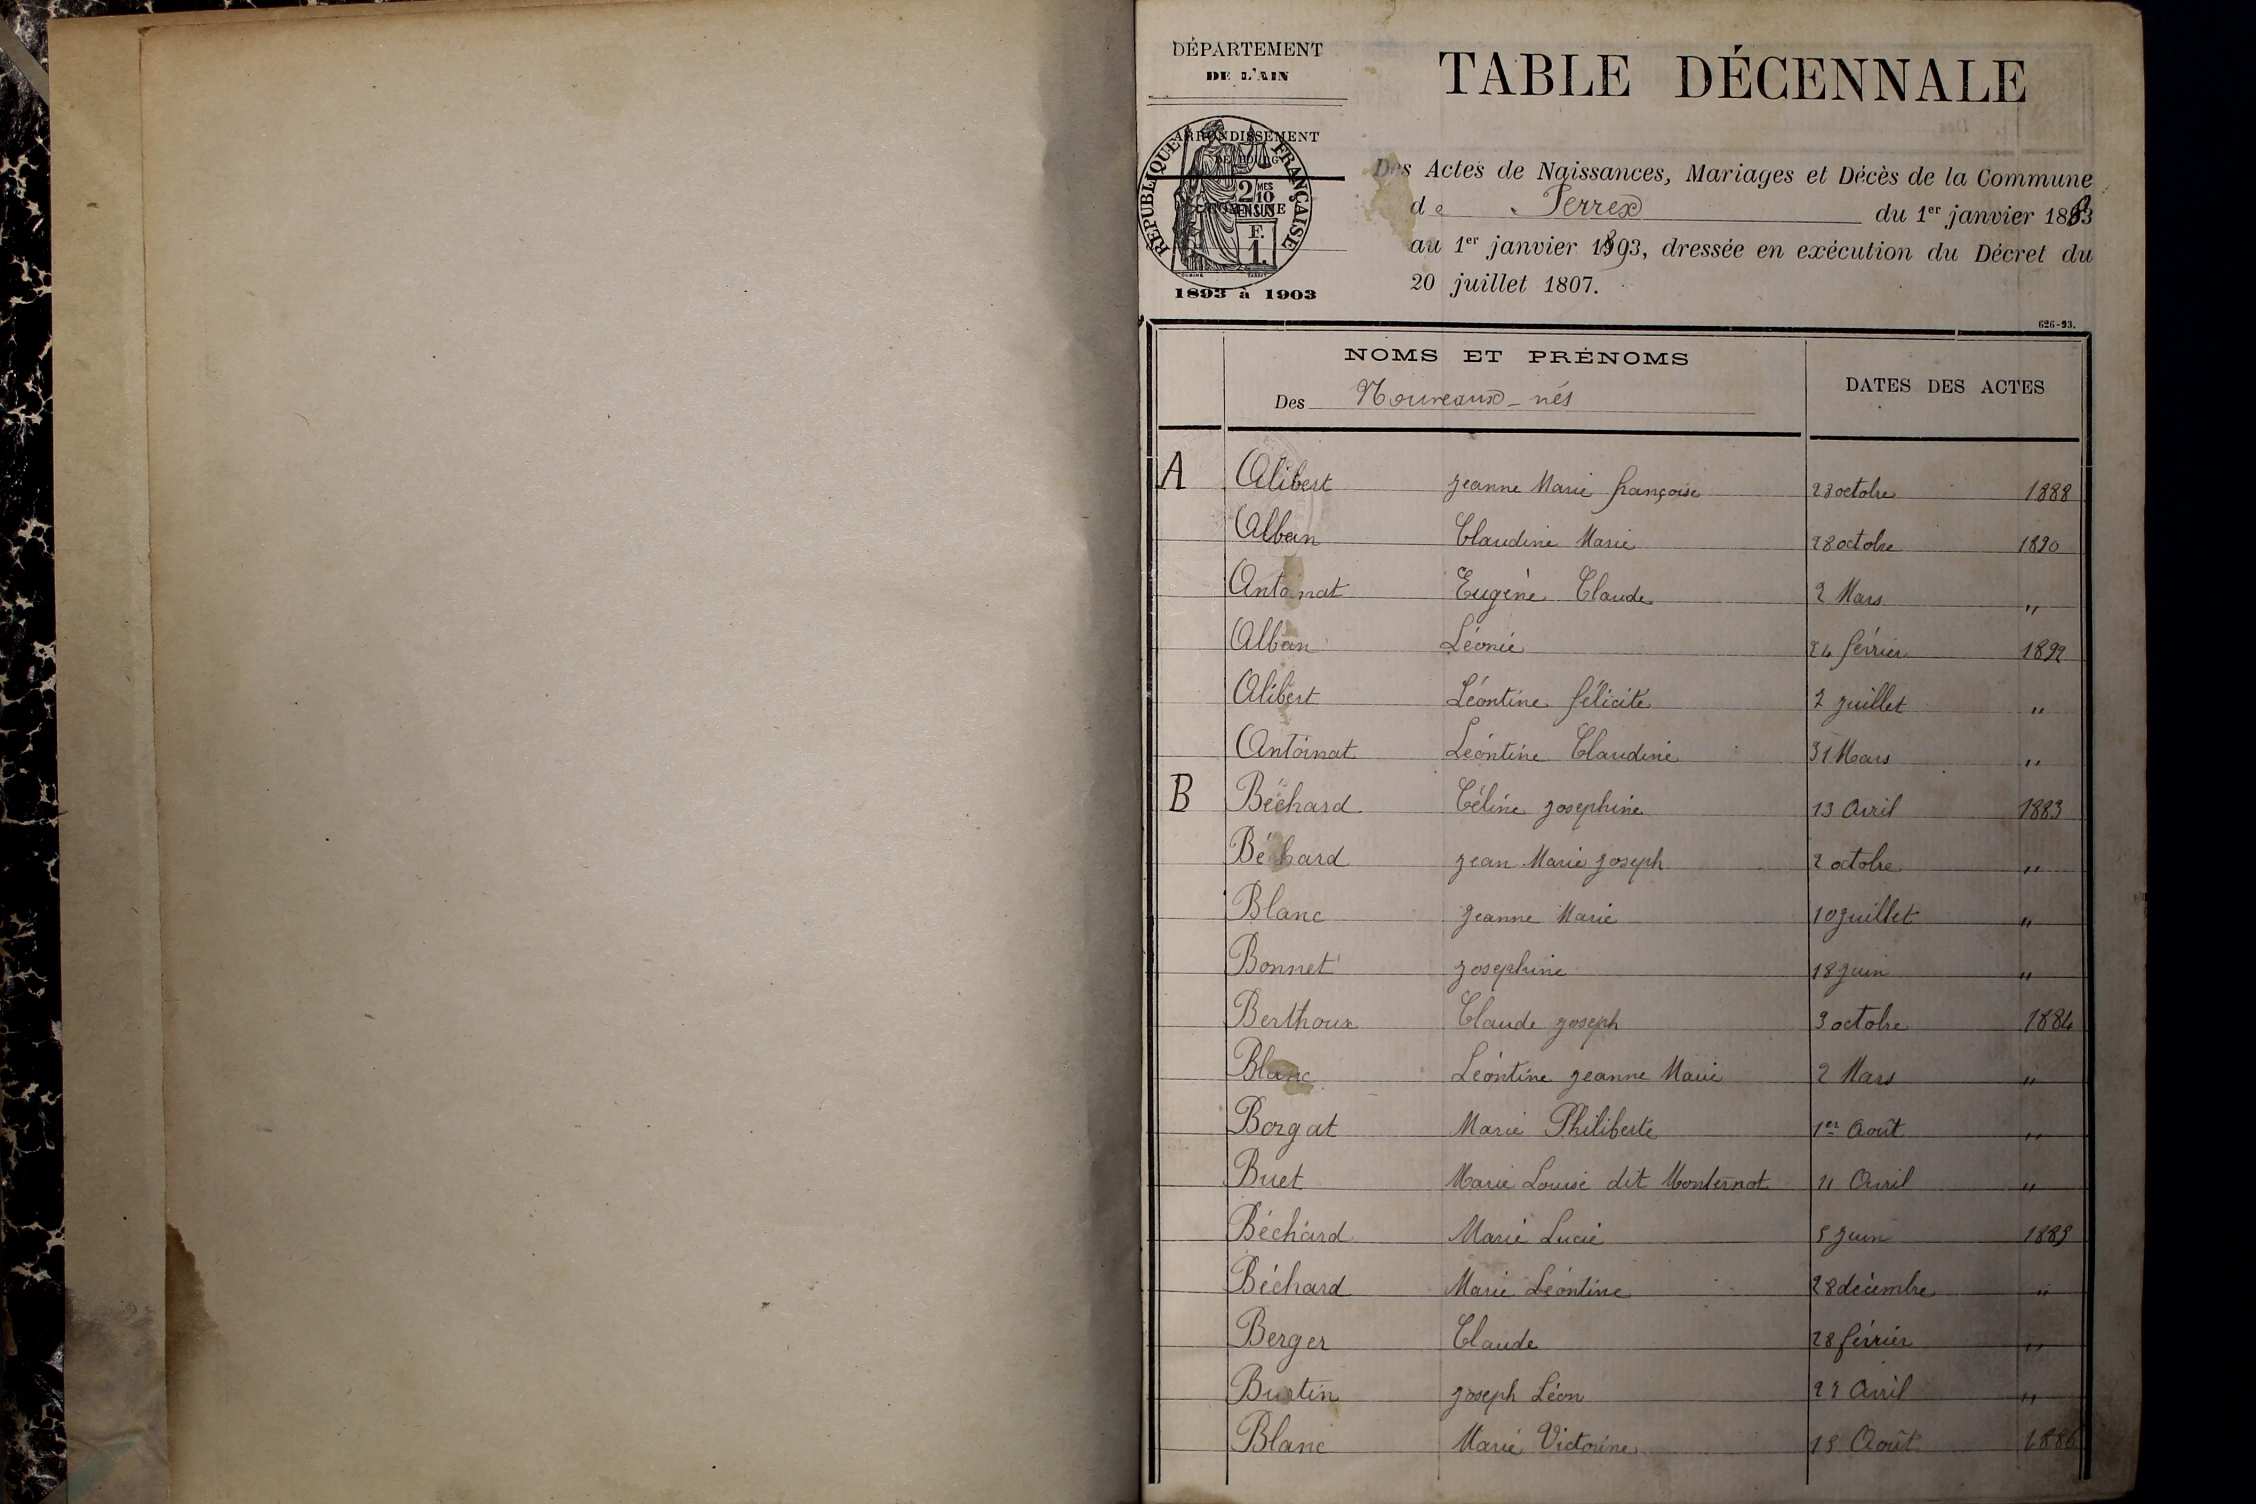 DÉPARTEMENT
DE L'AIN
ARRONDISSEMENT
DE BOURG
COMMUNE
RÉPUBLIQUE FRANÇAISE
2/10 MES
EN SUS
F.
1.
1893 à 1903
TABLE DÉCENNALE
Des Actes de Naissances, Mariages et Décès de la Commune
de Perrex du 1er janvier 1883
au 1er janvier 1893, dressée en exécution du Décret du
20 juillet 1807.
626-93.
NOMS ET PRÉNOMS
Des Nouveaux-nés
DATES DES ACTES
A Alibert Jeanne Marie françoise 23 octobre 1888
Alban Claudine Marie 28 octobre 1890
Antoinat Eugène Claude 2 Mars "
Alban Léonie 24 février 1892
Alibert Léontine félicité 2 Juillet "
Antoinat Léontine Claudine 31 Mars "
B Béchard Céline Josephine 13 Avril 1883
Béchard Jean Marie Joseph 2 octobre "
Blanc Jeanne Marie 10 Juillet "
Bonnet Josephine 18 Juin "
Berthoux Claude Joseph 3 octobre 1884
Blanc Léontine Jeanne Marie 2 Mars "
Borgat Marie Philiberte 1er Août "
Buet Marie Louise dit Monternot 11 Avril "
Béchard Marie Lucie 5 Juin 1885
Béchard Marie Léontine 28 décembre "
Berger Claude 28 février "
Burtin Joseph Léon Avril "
Blanc Marie Victorine 15 Août 1886